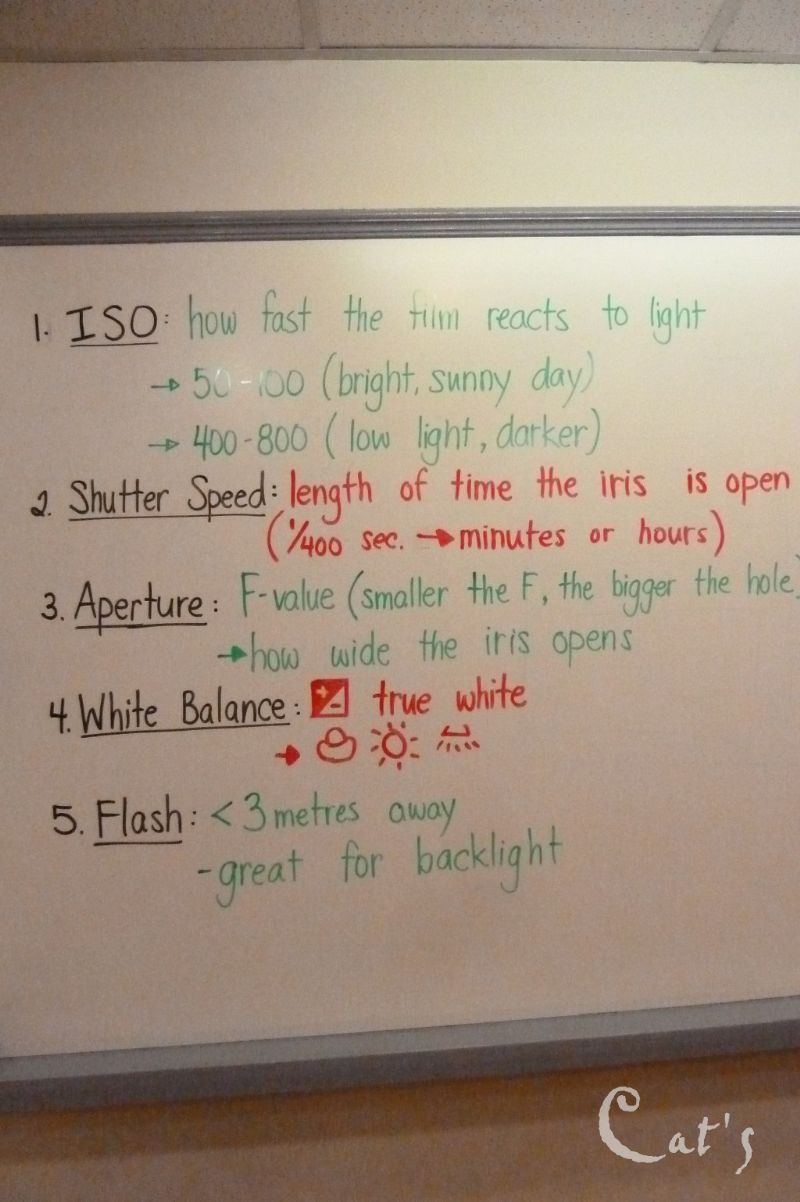 1. ISO: how fast the film reacts to light
→ 50-100 (bright, sunny day)
→ 400-800 (low light, darker)
2. Shutter Speed: length of time the iris is open
(1/400 sec. → minutes or hours)
3. Aperture: F-value (smaller the F, the bigger the hole)
→ how wide the iris opens
4. White Balance: +/- true white
→
5. Flash: < 3 metres away
- great for backlight
Cat's